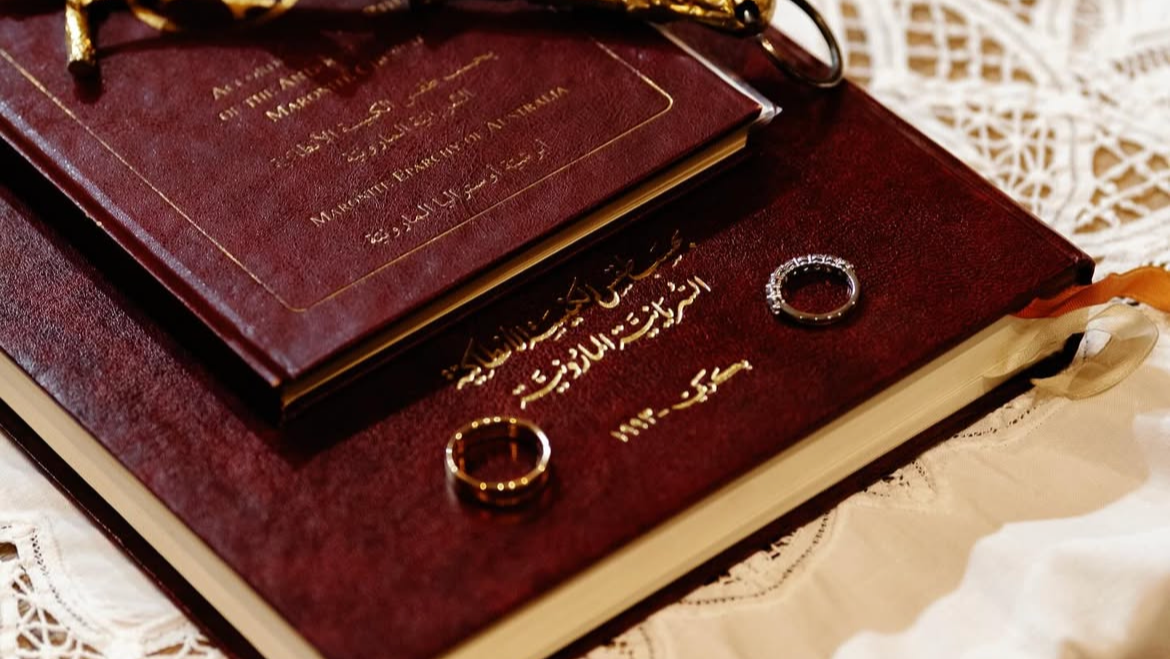 OF THE
MARO
بحسب طقس الكنيسة الانطاكية
السريانية المارونية
MARONITE EPARCHY OF AUSTRALIA
أبرشية اوستراليا المارونية
بحسب طقس الكنيسة الأنطاكية
السريانية المارونية
بكركي - ١٩٩٣